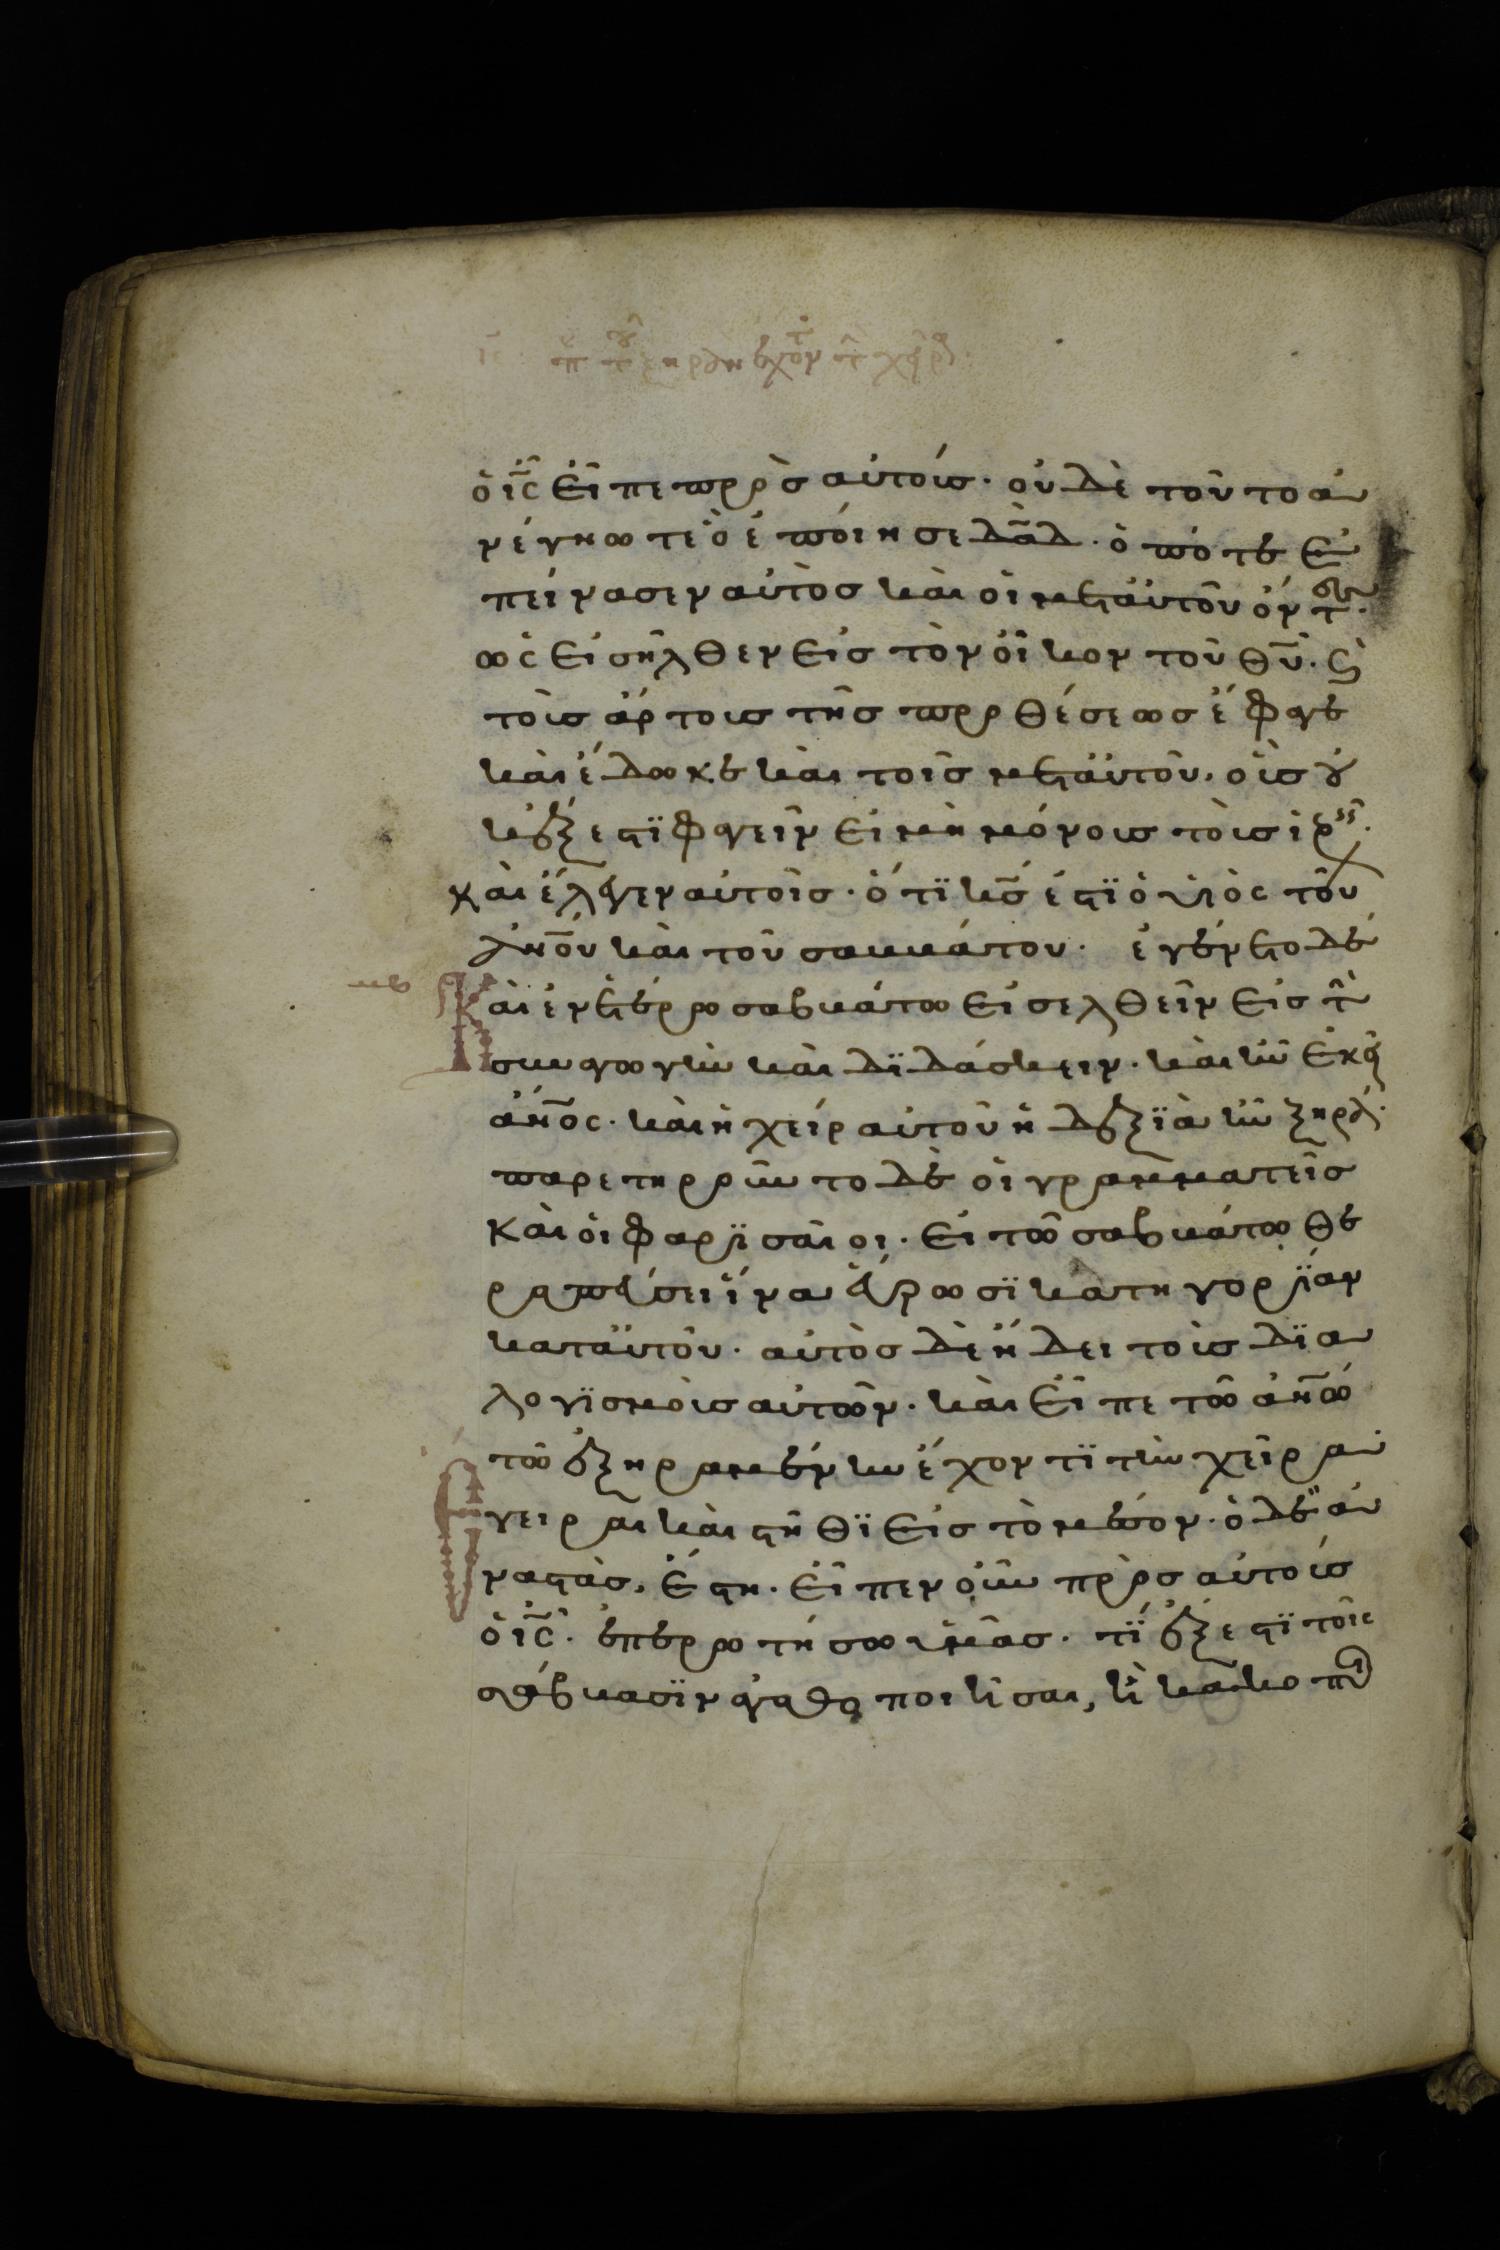 ὁ ις̅ εἶπε πρὸς αὐτούς· οὐδὲ τοῦτο ἀ
νέγνωτε ὃ ἐποίησε δα̅δ· ὁπότε ἐ
πείνασεν αὐτὸς καὶ οἱ μετ᾽ αὐτοῦ ὄντ·
ὡς εἰσῆλθεν εἰς τὸν οἶκον τοῦ θυ̅· ϗ
τοὺς ἄρτους τῆς προθέσεως ἔφαγε
καὶ ἔδωκε καὶ τοῖς μετ᾽ αὐτοῦ, οὓς οὐ
κ ἔξεστϊ φαγεῖν εἰ μὴ μόνους τοὺς ἱερ·
καὶ ἔλεγεν αὐτοῖς· ὅτϊ κς̅ ἐστϊ ὁ υἱὸς τοῦ
ἀνου̅ καὶ τοῦ σαββάτου· ἐγένετο δὲ
Καὶ ἐν ἑτέρρω σαββάτω εἰσελθεῖν εἰς τὴ
συναγωγὴν καὶ δϊδάσκειν· καὶ ἦν ἐκεῖ
ἀνο̅ς· καὶ ἡ χεὶρ αὐτοῦ ἡ δεξϊὰ ἦν ξηρά·
παρετηροῦντο δὲ οἱ γραμματεῖς
καὶ οἱ φαρϊσαῖοι· εἰ τῶ σαββάτω θε
ραπεύσει ἵνα εὕρωσϊ κατηγορϊαν
κατ᾽ αὐτοῦ· αὐτὸς δὲ ἤδει τοὺς δϊα
λογϊσμοὺς αὐτῶν· καὶ εἶπε τῶ ἀνω̅
τῶ ἐξηραμένην ἔχοντϊ τὴν χεῖρα·
Ἔγειραι καὶ στῆθϊ εἰς τὸ μέσον· ὁ δὲ ἀ
ναστὰς, ἔστη· εἶπεν οὖν πρὸς αὐτοὺς
ὁ ις̅· ἐπερρωτήσω ὑμᾶς· τϊ ἔξεστϊ τοῖς
σάββασϊν ἀγαθοποιῆσαι, ἢ κακοπ